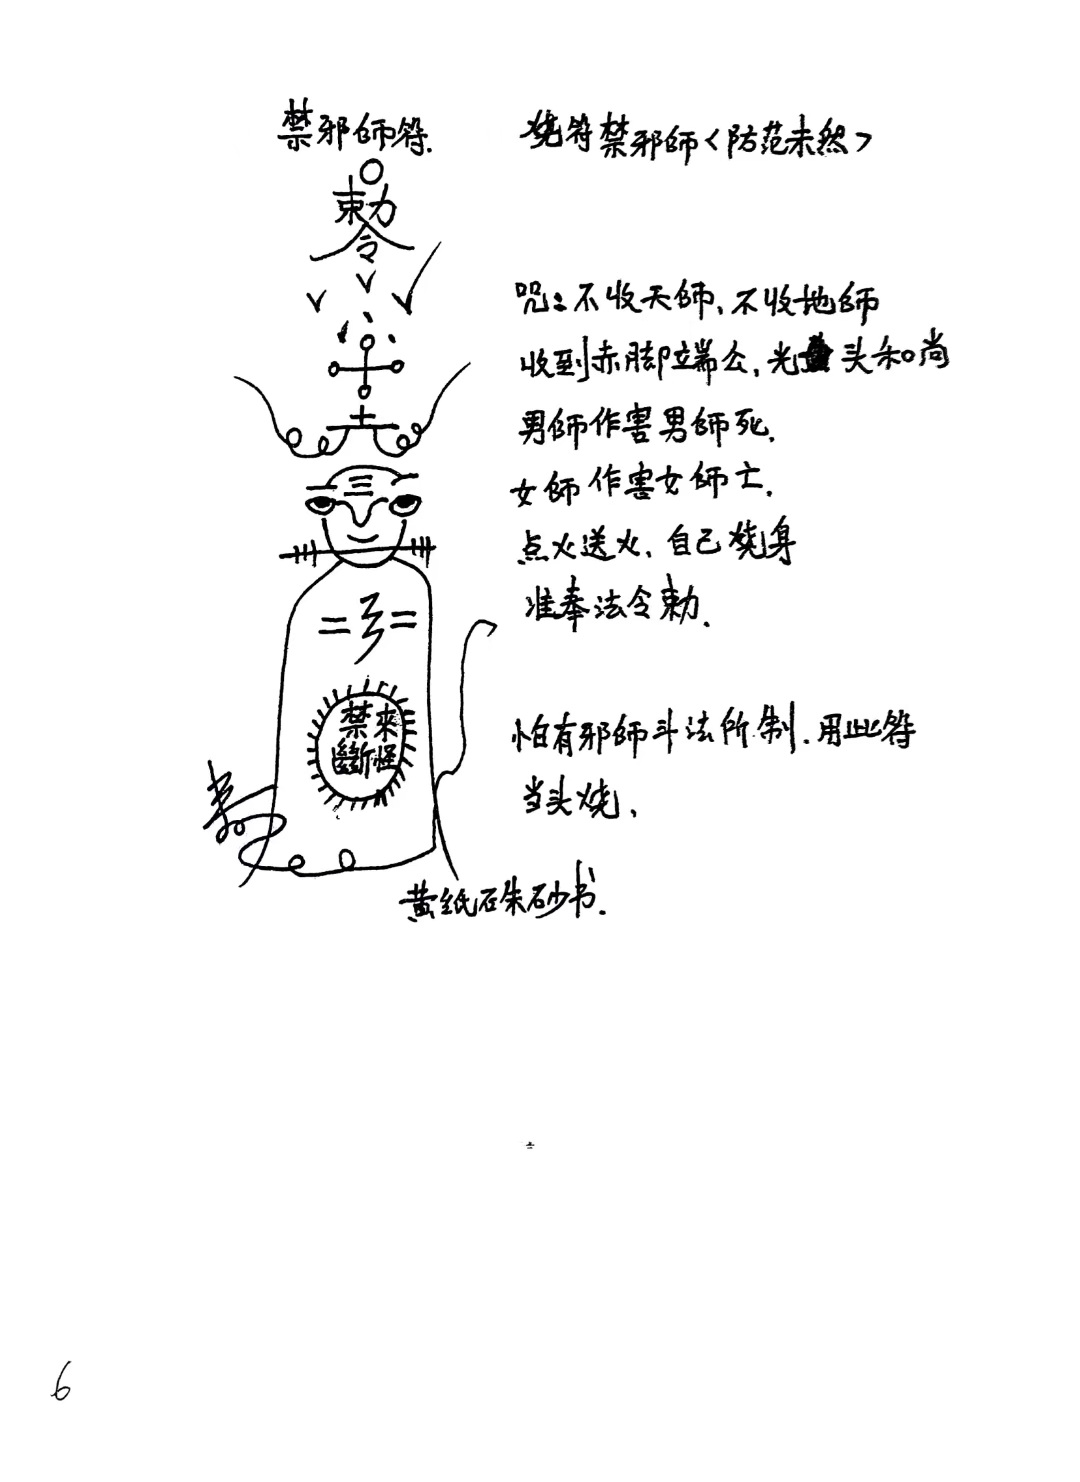 禁邪師符.
烧符禁邪師<防范未然>
敕
令
咒:不收天師、不收地師
收到赤脚端公,光头和尚
男師作害男師死.
土
女師作害女師亡.
三
点火送火、自己烧身
准奉法令敕.
禁來
斷怪
怕有邪師斗法所制.用此符
当头烧、
黄纸石朱砂书.
6